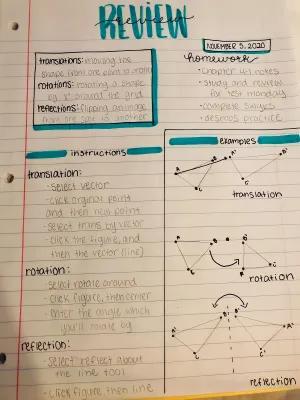 REVIEW
review
NOVEMBER 5, 2020
translations: moving the
shape from one point to another
rotations: rotating a shape
by x° around the grid
reflections: flipping an image
from one spot to another
homework
· chapter 4.1 notes
· study and review
for test monday
· complete 3
· desmos practice
instructions
translation:
· select vector
· click orginal point
and then new point
· select trans by vector
· click the figure, and
then the vector (line)
rotation:
· select rotate around
· click figure, then center
· enter the angle which
you'll rotate by
reflection:
· select reflect about
the line tool
· click figure, then line
examples
A B A' B'
C C'
translation
A B B'
C C'
rotation
B' B
A' A
C' C
reflection